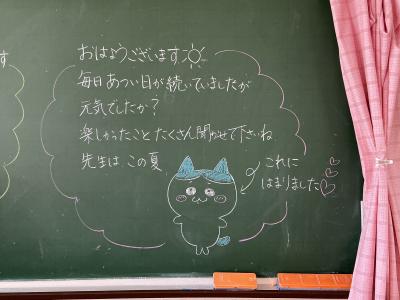 す
おはようございます
毎日あつい日が続いていましたが
元気でしたか?
楽しかったこと たくさん聞かせて下さいね
先生は この夏
これに
はまりました